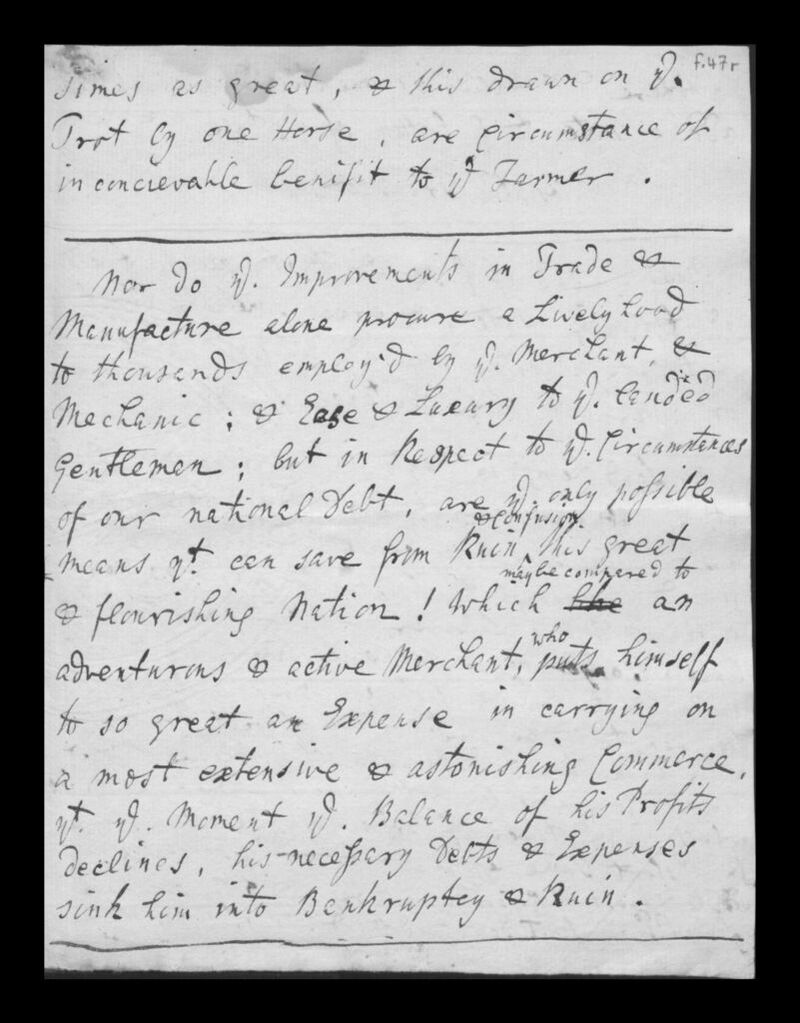 f.47r
times as great, & this drawn on ye.
Trot by one Horse, are Circumstance of
inconcievable benifit to ye Farmer.
Nor do ye. Improvements in Trade &
Manufacture alone procure a Livelyhood
to thousands employ'd by ye. Merchant, &
Mechanic; & Ease & Luxury to ye. landed
Gentlemen; but in Respect to ye. Circumstances
of our national Debt, are ye. only possible
& confusion
means yt. can save from Ruin, this great
may be compared to
& flourishing Nation! Which like an
who
adventurous & active Merchant, puts himself
to so great an Expense in carrying on
a most extensive & astonishing Commerce,
yt. ye. Moment ye. Balance of his Profits
declines, his necessary Debts & Expenses
sink him into Bankruptcy & Ruin.